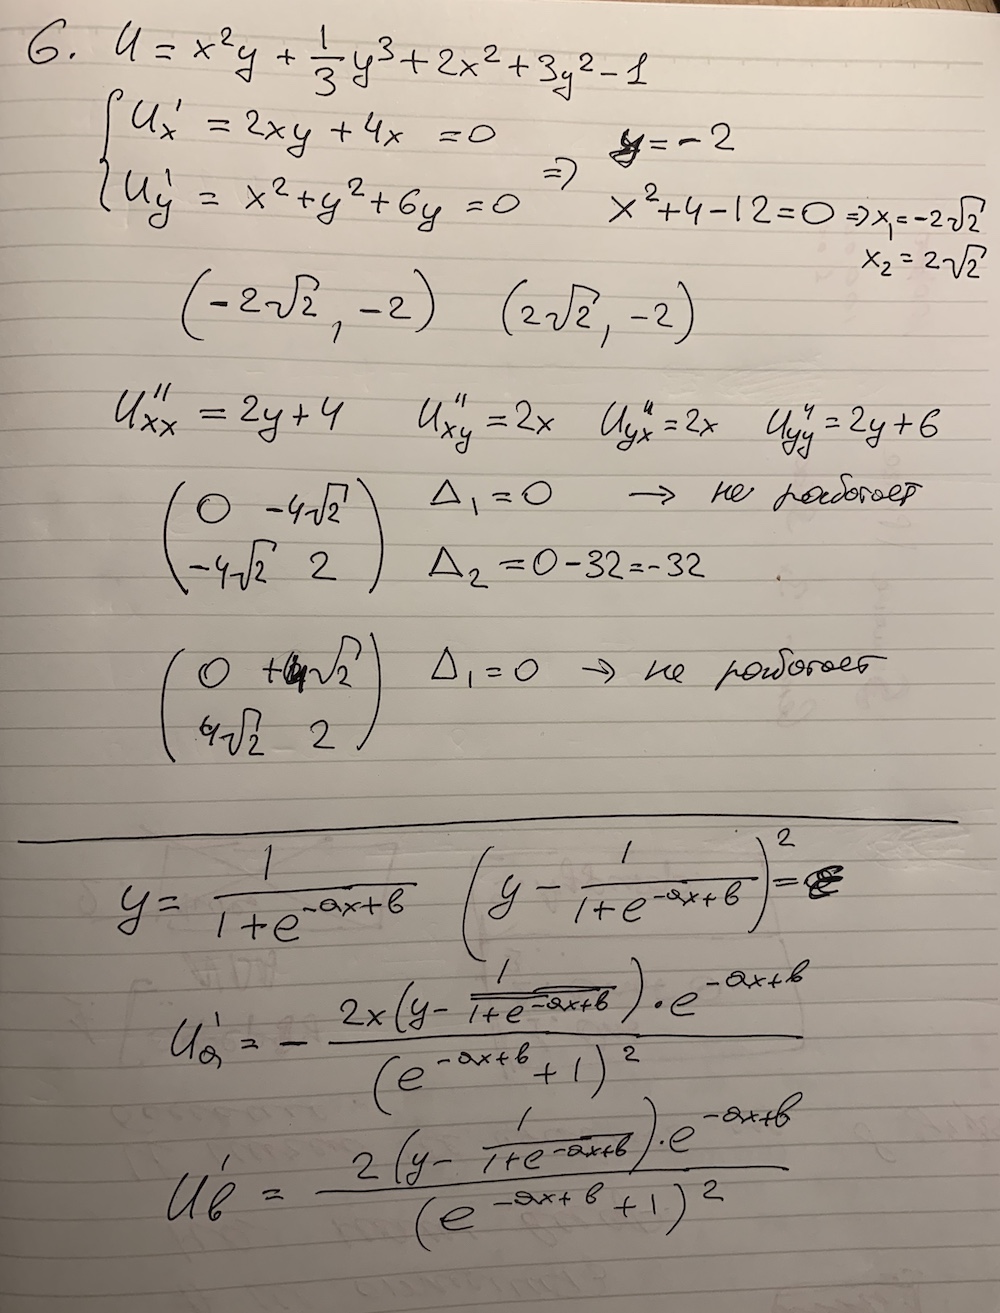 6. U = x²y + 1/3 y³ + 2x² + 3y² - 1
{ U'x = 2xy + 4x = 0 => y = -2
U'y = x² + y² + 6y = 0 x² + 4 - 12 = 0 => x₁ = -2√2
x₂ = 2√2
(-2√2, -2) (2√2, -2)
U''xx = 2y + 4 U''xy = 2x U''yx = 2x U''yy = 2y + 6
( 0 -4√2 ) Δ₁ = 0 → не работает
( -4√2 2 ) Δ₂ = 0 - 32 = -32
( 0 +4√2 ) Δ₁ = 0 → не работает
( 4√2 2 )
y = 1/(1 + e^(-ax+b)) (y - 1/(1 + e^(-ax+b)))² =
U'a = - 2x(y - 1/(1 + e^(-ax+b))) · e^(-ax+b) / (e^(-ax+b) + 1)²
U'b = 2(y - 1/(1 + e^(-ax+b))) · e^(-ax+b) / (e^(-ax+b) + 1)²